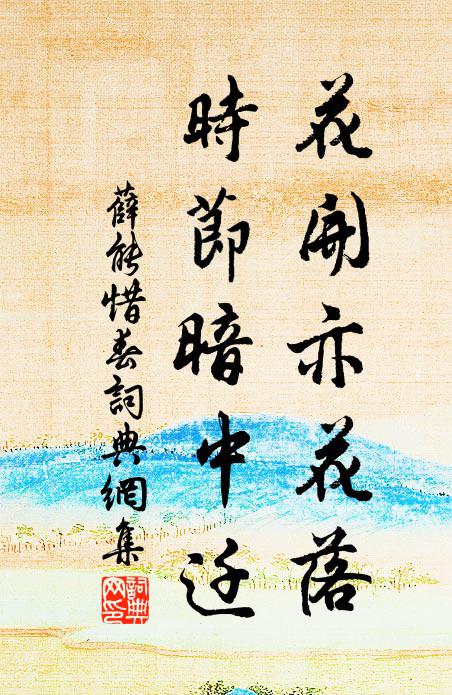 花開亦花落
時節暗中迁
薛能惜春詞典網集
詞典